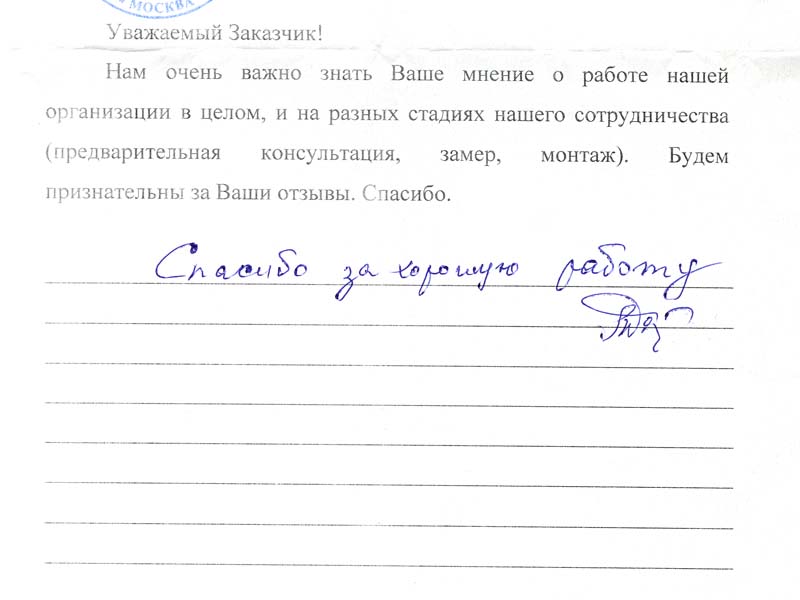 МОСКВА
Уважаемый Заказчик!
Нам очень важно знать Ваше мнение о работе нашей
организации в целом, и на разных стадиях нашего сотрудничества
(предварительная консультация, замер, монтаж). Будем
признательны за Ваши отзывы. Спасибо.
Спасибо за хорошую работу